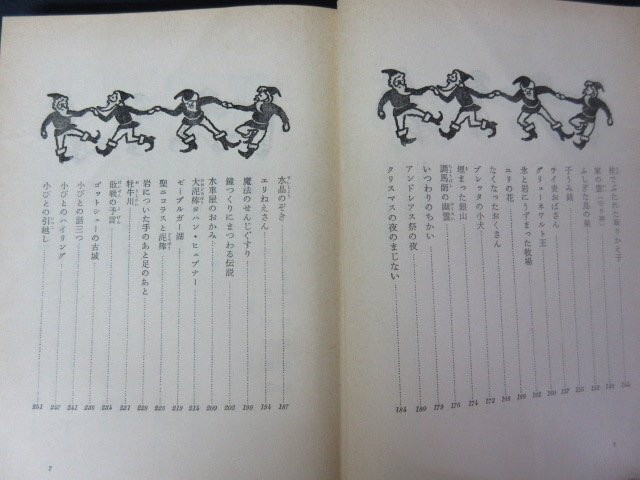 ふしぎな鳥の巣
グリューネワルト王
氷と岩にうずまった牧場
ユリの花
なくなったおくさん
プレッタの小犬 172
埋まった銀山 174
調馬師の幽霊 176
いつわりのちかい 179
アンドレアス祭の夜 180
クリスマスの夜のまじない
水晶のぞき 187
エリねえさん 194
魔法のせんじぐすり 199
鐘つくりにまつわる伝説 202
水車屋のおかみ 209
大泥棒ヨハン・ヒュブナー 215
ゼーブルガー湖 219
聖ニコラスと泥棒 226
岩についた手のあと足のあと 228
牡牛川 231
敗戦の予言 234
ゴットシェーの古城 236
小びとの話三つ 241
小びとのハイリング 247
小びとの引越し 251
7